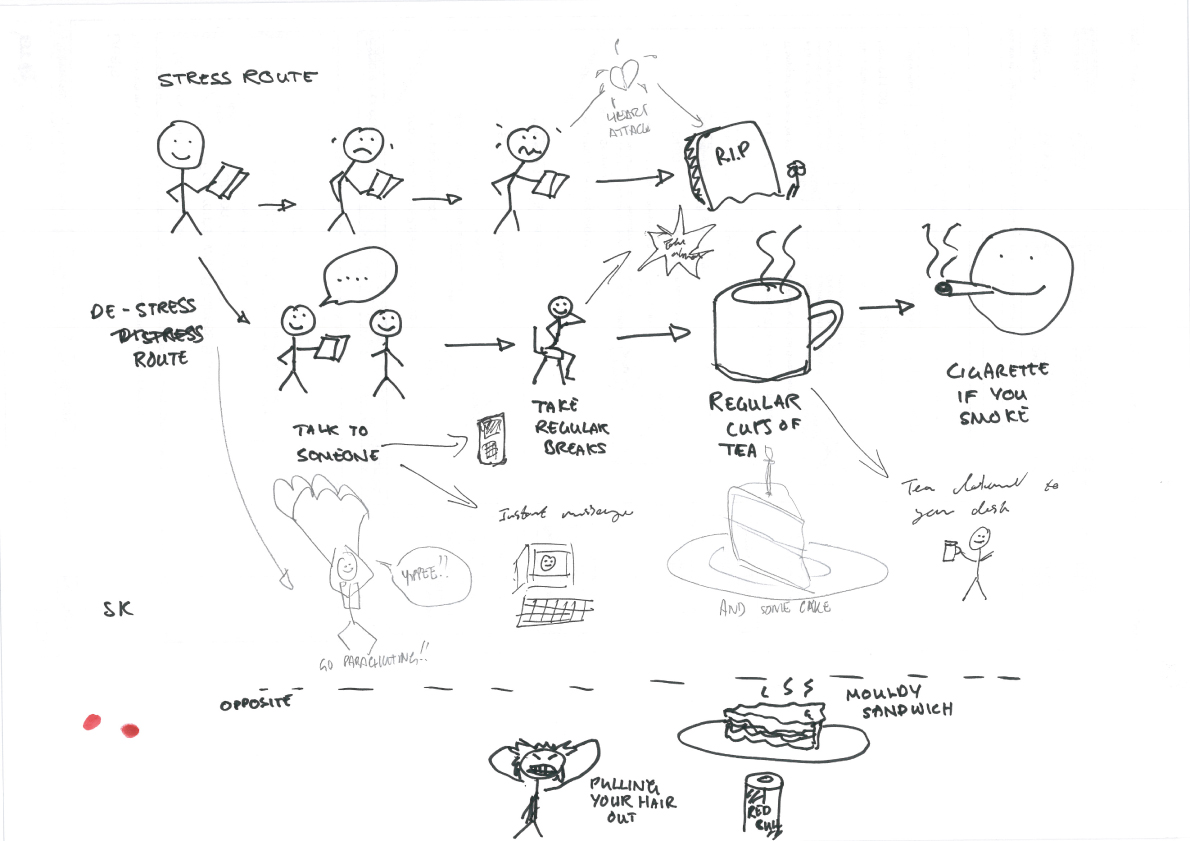 STRESS ROUTE
HEART
ATTACK
R.I.P
DE-STRESS
DISTRESS
ROUTE
....
TALK TO
SOMEONE
TAKE
REGULAR
BREAKS
REGULAR
CUPS OF
TEA
CIGARETTE
IF YOU
SMOKE
Instant message
Tea delivered to
your desk
YIPPEE!!
GO PARACHUTING!!
AND SOME CAKE
SK
OPPOSITE
MOULDY
SANDWICH
PULLING
YOUR HAIR
OUT
RED
BULL